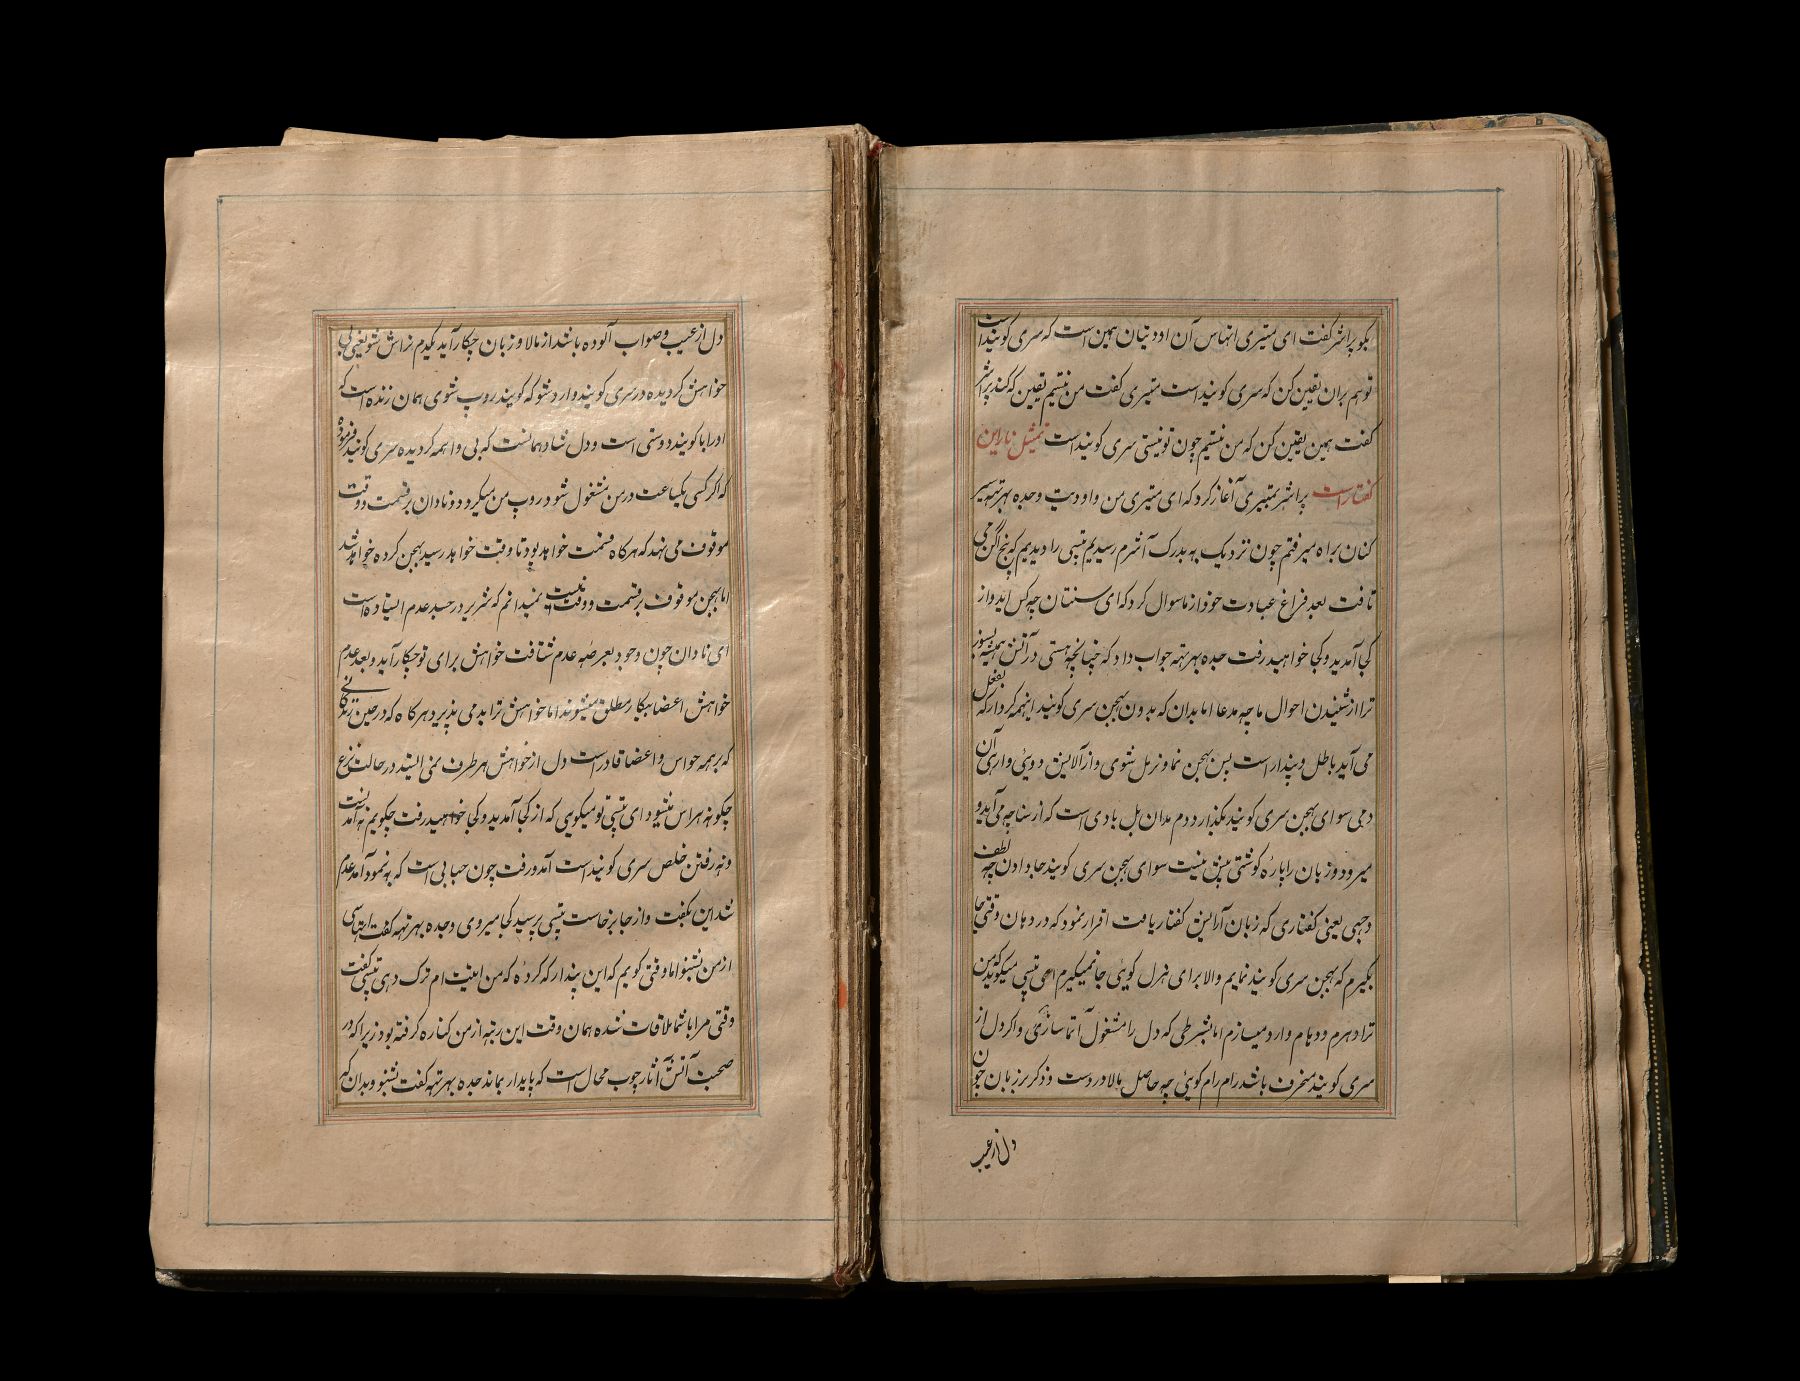 بگو پراشر گفت ای متیری انهاس آن اودنیان همین است که سری گویند است
تو هم بران یقین کن که سری گویند است متیری گفت من نیستم یقین که کند پراشر
گفت همین یقین کن که من نیستم چون تو نیستی سری گویند است تمثیل ناراین
گفتار است پراشر بمتیری آغاز کرد که ای متیری من و اودیت وجده بهرتهه سیر
کنان براه میرفتم چون نزدیک به بدرک آشرم رسیدیم تپسی را دیدیم که پنج اگن می
تافت بعد فراغ عبادت خود از ما سوال کرد که ای سنتان چه کس اید و از
کجا آمدید و کجا خواهید رفت جده بهرتهه جواب داد که چنانچه هستی در آتش همیشه بسوز
ترا از شنیدن احوال ما چه مدعا اما بدان که بدون بهجن سری گویند اینهمه کردار که بفعل
می آید باطل و پندار است پس بهجن نما و نرمل شوی و از آلایش دویی وارهی آن
دمی سوای بهجن سری گویند بگذارد دم مدان بل بادی است که از سنا چه می آید و
میرود و زبان را پاره گوشتی بیش نیست سوای بهجن سری گویند جا دادن چه لطف
دهی یعنی گفتاری که زبان آرایش گفتار یافت اقرار نمود که در دهان وقتی جا
بگیرم که بهجن سری گویند نمایم والا برای هزل گویی جا نمیگیرم ای تپسی میگوید که من
ترا دهرم و دهام وارد میسازم اما بشرطی که دل را مشغول آتما سازی و اگر دل از
سری گویند منحرف باشد رام رام گویی چه حاصل بالا و ر دست و ذکر بر زبان چون
دل از عیب
دل از عیب و صواب آلوده باشد از مالا و زبان چکار آید یکدم نراش شو یعنی بی
خواهش گردیده در سری گویند وارد شو که گویند روپ شوی همان زنده است که
او را با گویند دوستی است و دل شاد همانست که بی واهمه گردیده سری گویند فرموده
که اگر کسی یکساعت در من مشغول شود روپ من میگردد و نادان بر قسمت و وقت
موقوف می نهد که هرگاه قسمت خواهد بود تا وقت خواهد رسید بهجن کرده خواهد شد
اما بهجن موقوف بر قسمت و وقت نیست نمیدانم که شریر در حسد عدم ایستاده است
ای نادان چون وجود بعرصه عدم شتافت خواهش برای تو چکار آید و بعد عدم
خواهش اعضا بیکار مطلق میشوند اما خواهش ترا بد می پذیرد هرگاه که در حین زندگانی
که بر همه حواس و اعضا قادر است دل از خواهش هر طرف نمی ایستد در حالت نزع
چگونه هراس میشود ای تپسی تو میگویی که از کجا آمدید و کجا خواهید رفت چگویم نه آمدنست
و نه رفتن خلص سری گویند است آمد و رفت چون حبابی است که به نمود آمد عدم
شد این بگفت و از جا برخاست تپسی پرسید کجا میروی وجده بهرتهه گفت ای تپسی
از من بشنو اما وقتی گویم که این پندار که کرده که من اینست ام ترک دهی تپسی گفت
وقتی مرا با شما ملاقات شده همان وقت این رتبه از من کناره گرفته بود زیرا که در
صحبت آتش آثار چوب محال است که پایدار بماند جده بهرتهه گفت بشنو و بدان که